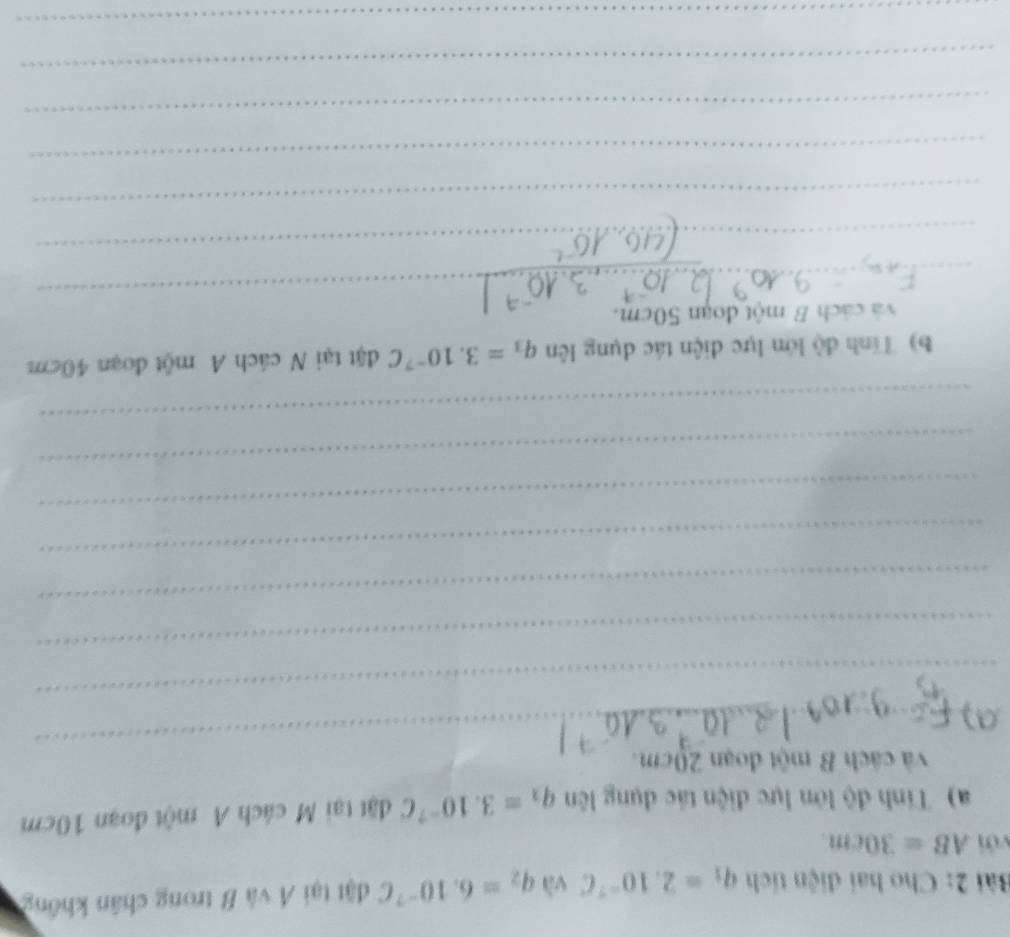 Bài 2: Cho hai điện tích q₁ = 2.10⁻⁷C và q₂ = 6.10⁻⁷C đặt tại A và B trong chân không
với AB = 30cm.
a) Tính độ lớn lực điện tác dụng lên q₃ = 3.10⁻⁷C đặt tại M cách A một đoạn 10cm
và cách B một đoạn 20cm.
a) F = 9.10⁹. |2.10⁻⁷. 3.10⁻⁷|
b) Tính độ lớn lực điện tác dụng lên q₃ = 3.10⁻⁷C đặt tại N cách A một đoạn 40cm
và cách B một đoạn 50cm.
= 9.10⁹ |2.10⁻⁷. 3.10⁻⁷|